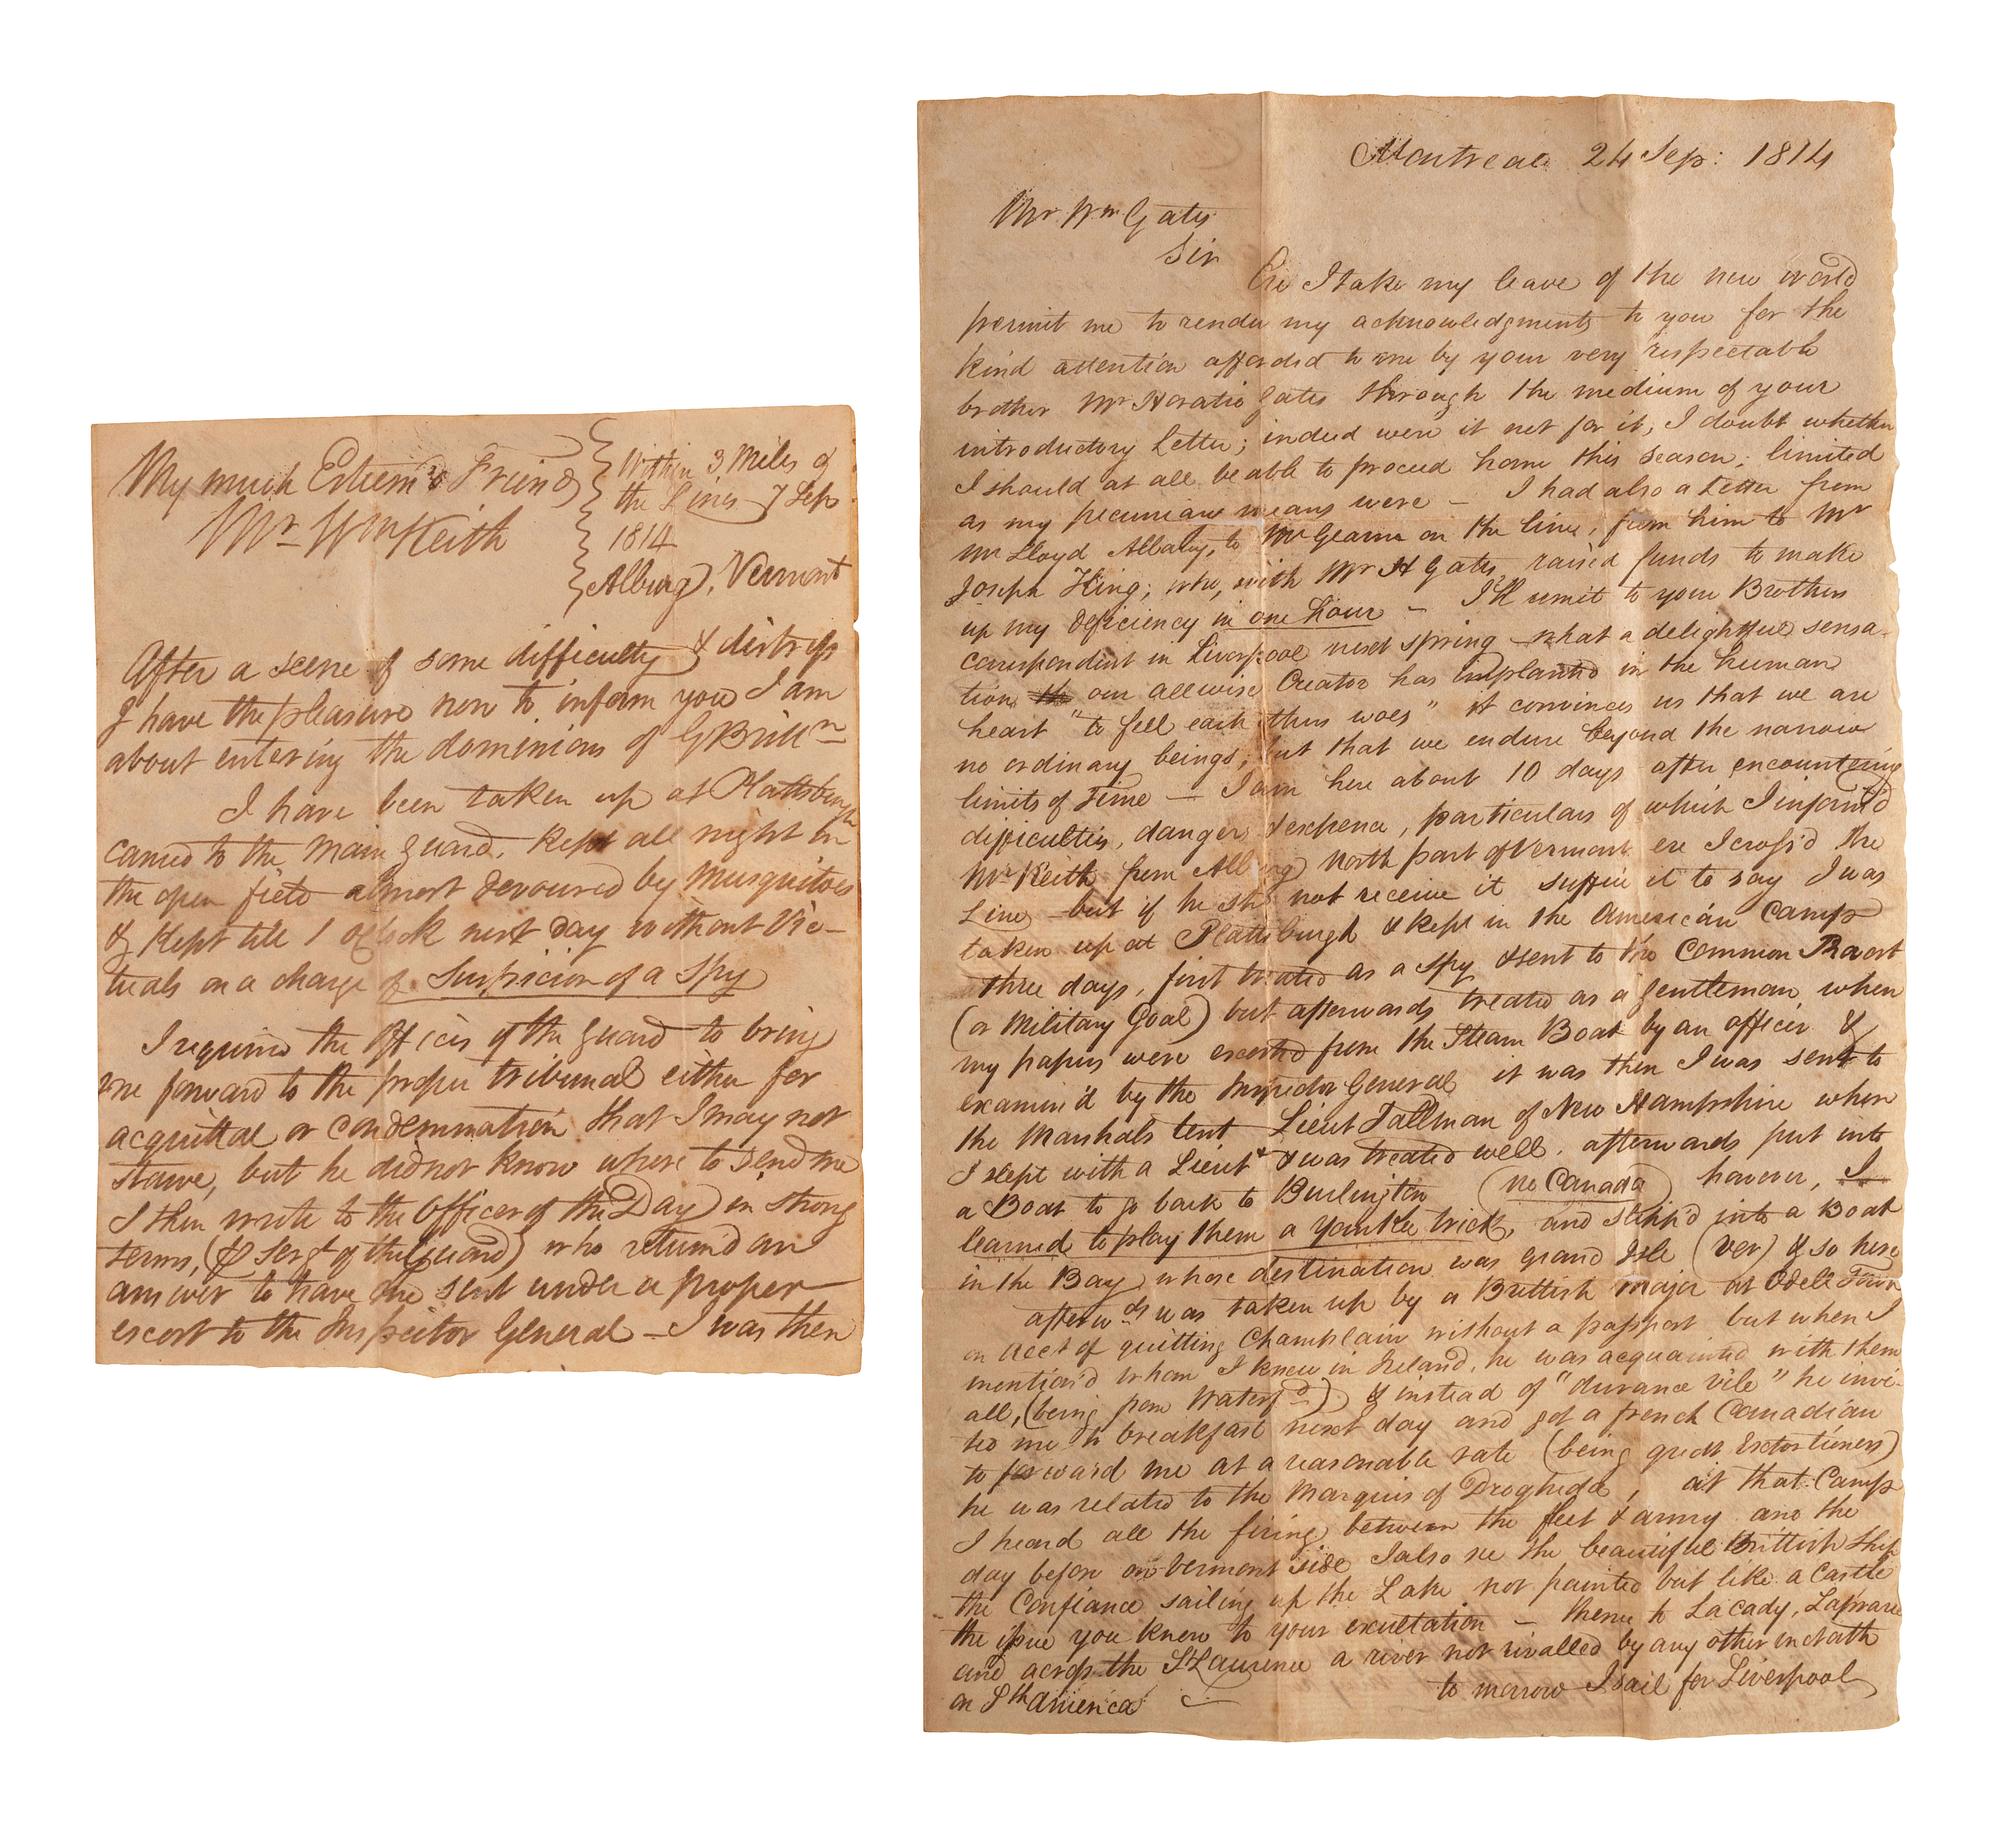 My much Esteem'd Friend
Mr Wm Keith
Within 3 Miles of
the Lines 7 Sep
1814
Alburg, Vermont
After a scene of some difficulty & distress
I have the pleasure now to inform you I am
about entering the dominions of G Britn
I have been taken up at Plattsburgh
carried to the main guard, kept all night in
the open field almost devoured by musquitoes
& kept till 1 oClock next day without vic-
tuals on a charge of Suspicion of a Spy
I required the officer of the guard to bring
me forward to the proper tribunal either for
acquittal or condemnation that I may not
starve, but he did not know where to send me
I then wrote to the officer of the Day in strong
terms, (& Serjt of the guard) who return'd an
answer to have me sent under a proper
escort to the Inspector General — I was then
Montreal 24 Sep: 1814
Mr Wm Gates
Sir
Ere I take my leave of the new world
permit me to render my acknowledgments to you for the
kind attention afforded to me by your very respectable
brother Mr Horatio Gates through the medium of your
introductory Letter; indeed were it not for it, I doubt whether
I should at all be able to proceed home this season, limited
as my pecuniary means were — I had also a Letter from
Mr Lloyd Albany, to on the line, from him to Mr
Joseph King; who, with Mr H Gates raised funds to make
up my deficiency in one hour — I'll remit to your Brothers
correspondent in Liverpool next spring what a delightful sensa-
tion our allwise Creator has implanted in the human
heart "to feel each others woes" it convinces us that we are
no ordinary beings, but that we endure beyond the narrow
limits of Time — I am here about 10 days after encountering
difficulties, danger & expence, particulars of which I inform'd
Mr Keith from Alburg north part of Vermont ere I cross'd the
Line but if he shd not receive it suffice it to say I was
taken up at Plattsburgh & kept in the American Camp
three days, first treated as a spy & sent to the Common
(or Military Goal) but afterwards treated as a gentleman, when
my papers were escorted from the Steam Boat by an officer &
examin'd by the Inspector General it was then I was sent to
the Marshals tent Lieut Tallman of New Hampshire when
I slept with a Lieut & was treated well, afterwards put into
a Boat to go back to Burlington (no Canada) however, I
learned to play them a Yankee trick, and slipp'd into a Boat
in the Bay whose destination was grand Isle (Ver) & so here
afterwds was taken up by a Brittish major at Odell Town
on acct of quitting Champlain without a passport but when I
mention'd whom I knew in Ireland, he was acquainted with them
all, (being from Waterfd) & instead of "durance vile" he invi-
ted me to breakfast next day and got a french Canadian
to forward me at a reasonable rate (being great Extortioners)
he was related to the Marquis of Drogheda, at that Camp
I heard all the firing between the fleet & army and the
day before on Vermont side I also see the beautiful Brittish ship
the Confiance sailing up the Lake not painted but like a Castle
the issue you know to your exultation — thence to Lacady, Laprarie
and across the St Laurence a river not rivalled by any other in
or Sth America
to morrow I sail for Liverpool